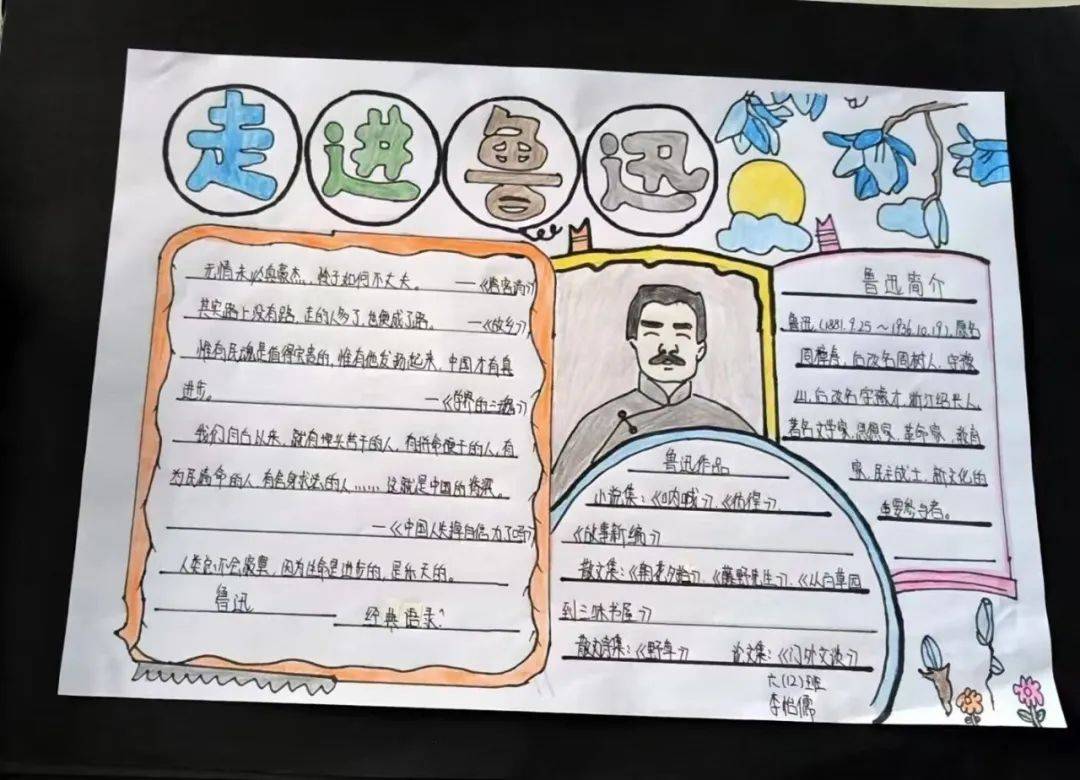 走进鲁迅
无情未必真豪杰，怜子如何不丈夫。——《答客诮》
其实地上没有路，走的人多了，也便成了路。——《故乡》
惟有民魂是值得宝贵的，惟有他发动起来，中国才有真
进步。——《学界的三魂》
我们自古以来，就有埋头苦干的人，有拼命硬干的人，有
为民请命的人，有舍身求法的人……这就是中国的脊梁。
——《中国人失掉自信力了吗》
人类总不会寂寞，因为生命是进步的，是乐天的。
鲁迅 经典语录
鲁迅作品
小说集：《呐喊》、《彷徨》、
《故事新编》
散文集：《朝花夕拾》、《藤野先生》、《从百草园
到三味书屋》
散文诗集：《野草》 论文集：《门外文谈》
六(12)班
李怡儒
鲁迅简介
鲁迅(1881.9.25～1936.10.19)，原名
周樟寿，后改名周树人，字豫
山，后改名字豫才，浙江绍兴人，
著名文学家、思想家、革命家、教育
家、民主战士，新文化的
重要参与者。